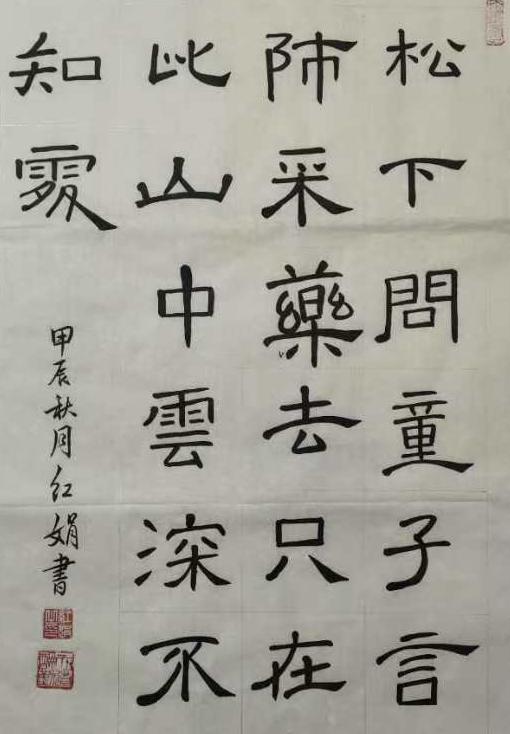 松下問童子言
師采藥去只在
此山中雲深不
知處
甲辰秋月红娟書